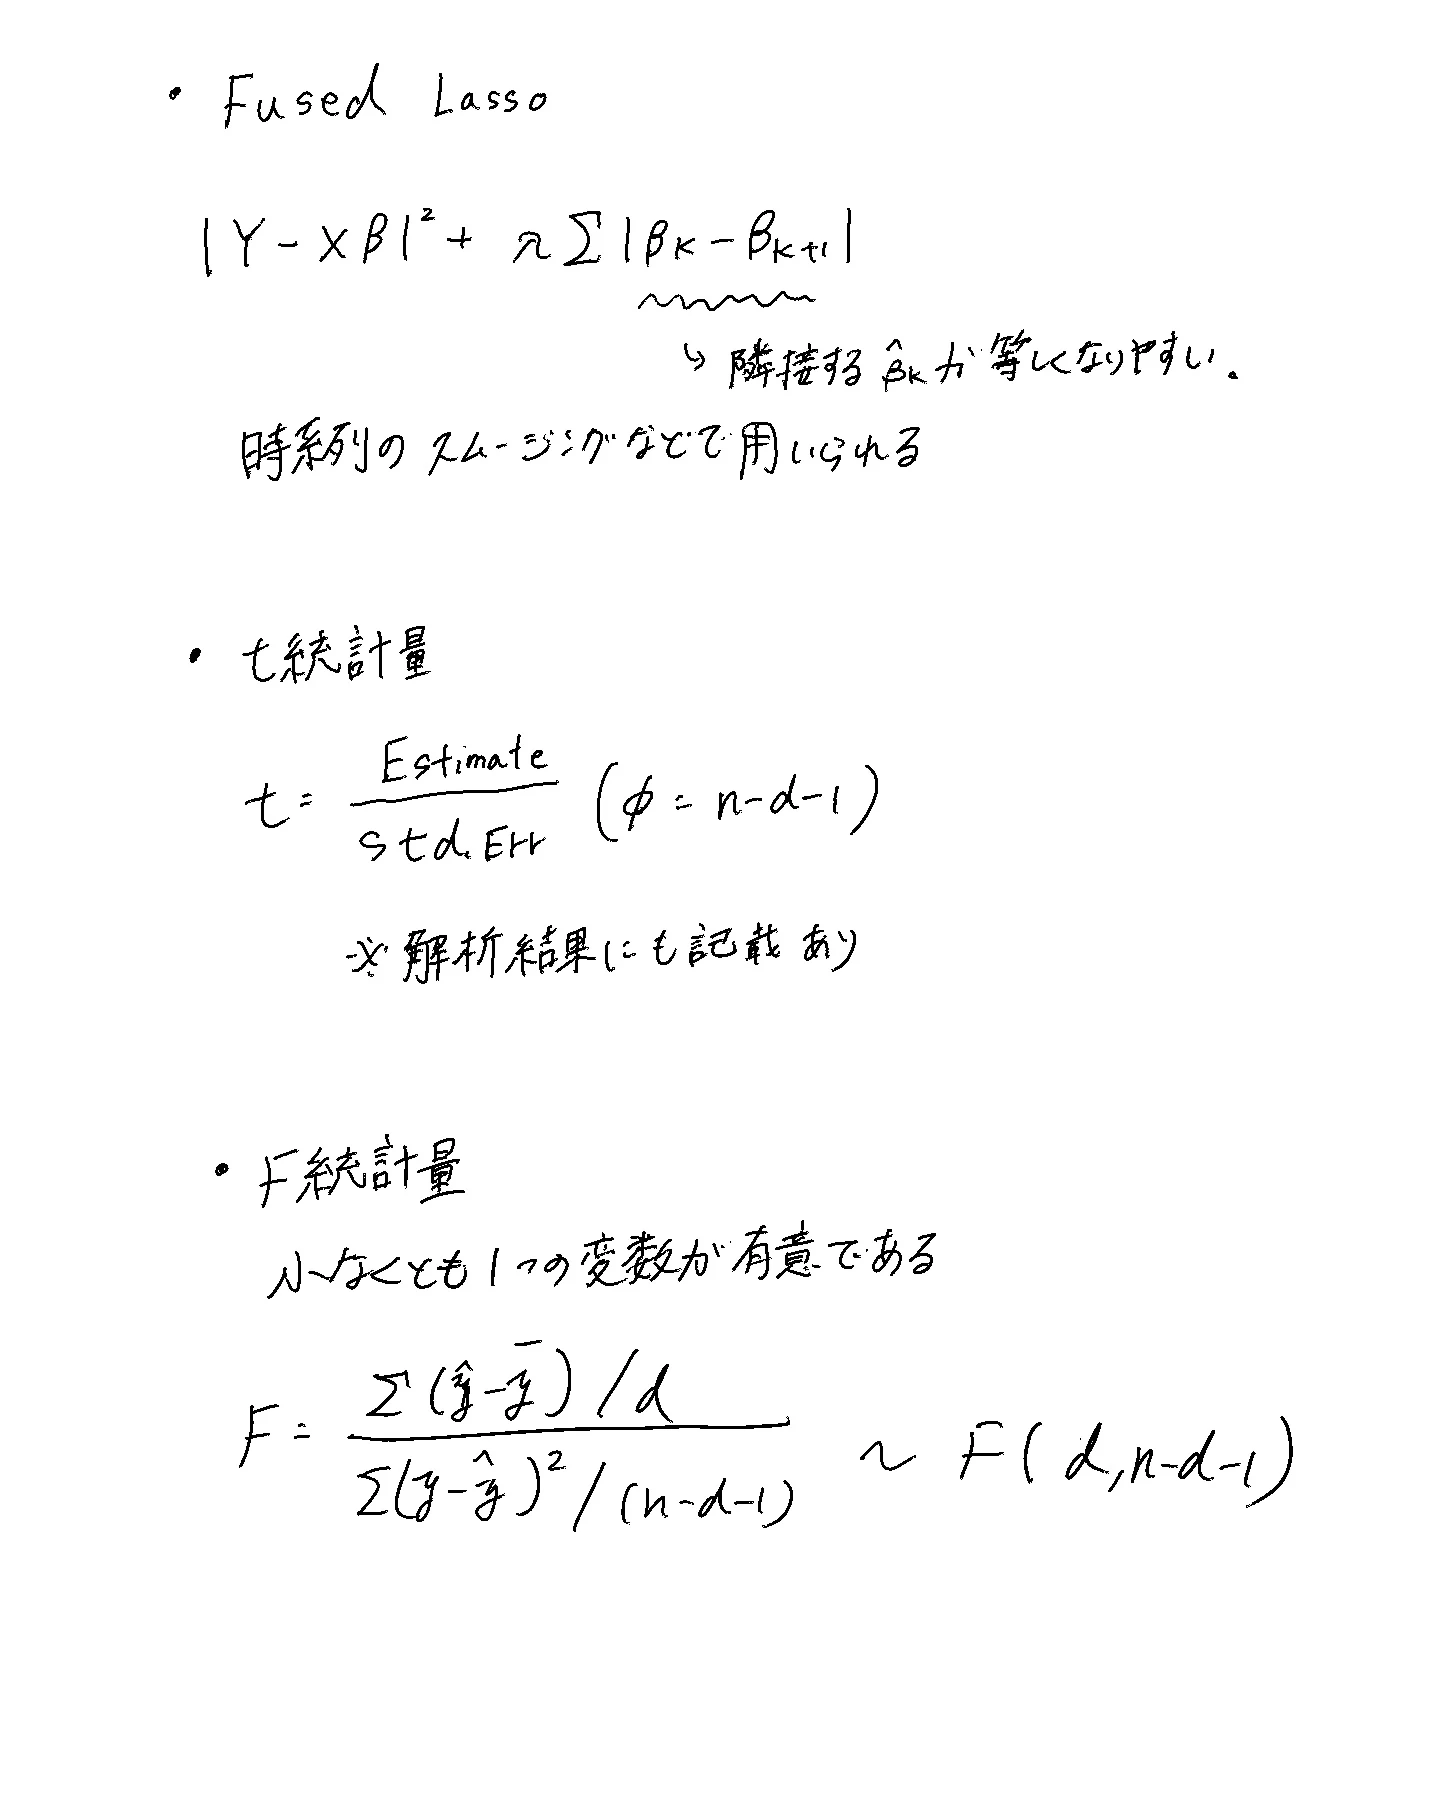 ・ Fused Lasso
|Y - Xβ|² + λΣ|βk - βk+1|
↳ 隣接するβ̂kが等しくなりやすい.
時系列のスムージングなどで用いられる
・ t統計量
t = Estimate / Std.Err (φ = n-d-1)
※解析結果にも記載あり
・ F統計量
少なくとも1つの変数が有意である
F = Σ(ŷ-ȳ)/d / Σ(y-ŷ)²/(n-d-1) ~ F(d,n-d-1)